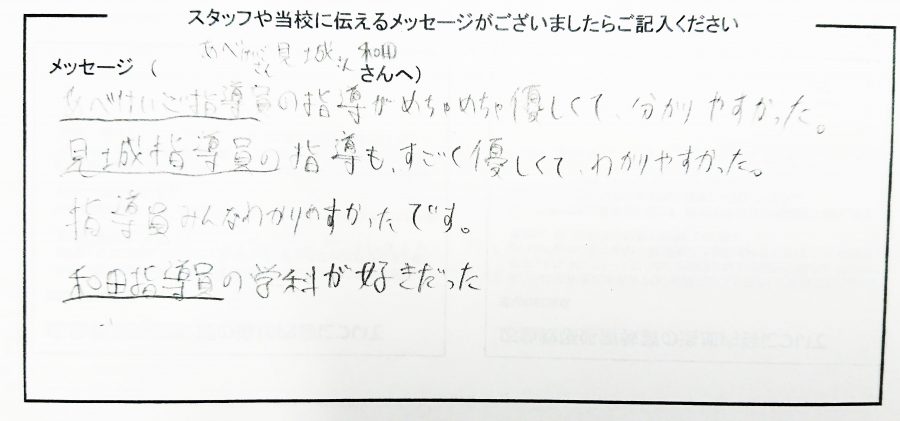 スタッフや当校に伝えるメッセージがございましたらご記入ください
メッセージ （あべけいごさん 見城さん 和田さんへ）
あべけいご指導員の指導がめちゃめちゃ優しくて、分かりやすかった。
見城指導員の指導も、すごく優しくて、わかりやすかった。
指導員みんなわかりやすかったです。
和田指導員の学科が好きだった